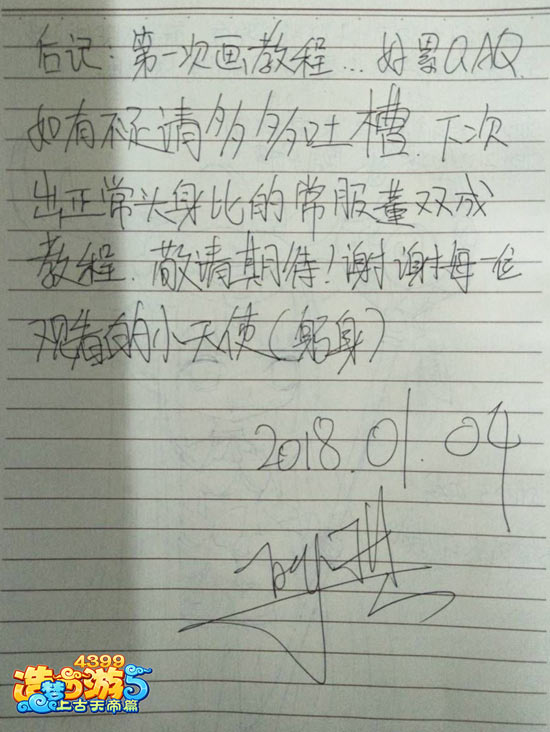 后记：第一次画教程…好累QAQ.
如有不足请多多多吐槽.下次
出正常头身比的常服董双成
教程.敬请期待！谢谢每一位
观看的小天使（躬身）
2018.01.04
4399
造梦西游5
上古天帝篇